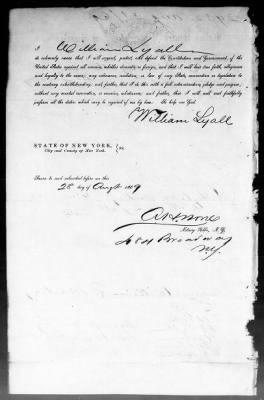 I William Lyall
do solemnly swear that I will support, protect, and defend the Constitution and Government of the
United States against all enemies, whether domestic or foreign, and that I will bear true faith, allegiance
and loyalty to the same, any ordinance, resolution, or law of any State, convention or legislature to
the contrary notwithstanding; and further, that I do this with a full determination, pledge and purpose,
without any mental reservation or evasion whatsoever; and further, that I will well and faithfully
perform all the duties which may be required of me by law. So help me God.
William Lyall
STATE OF NEW YORK, } ss.
City and County of New York.
Sworn to and subscribed before me this
28 day of Augt 1869
Notary Public, N.Y.
Broadway
N.Y.